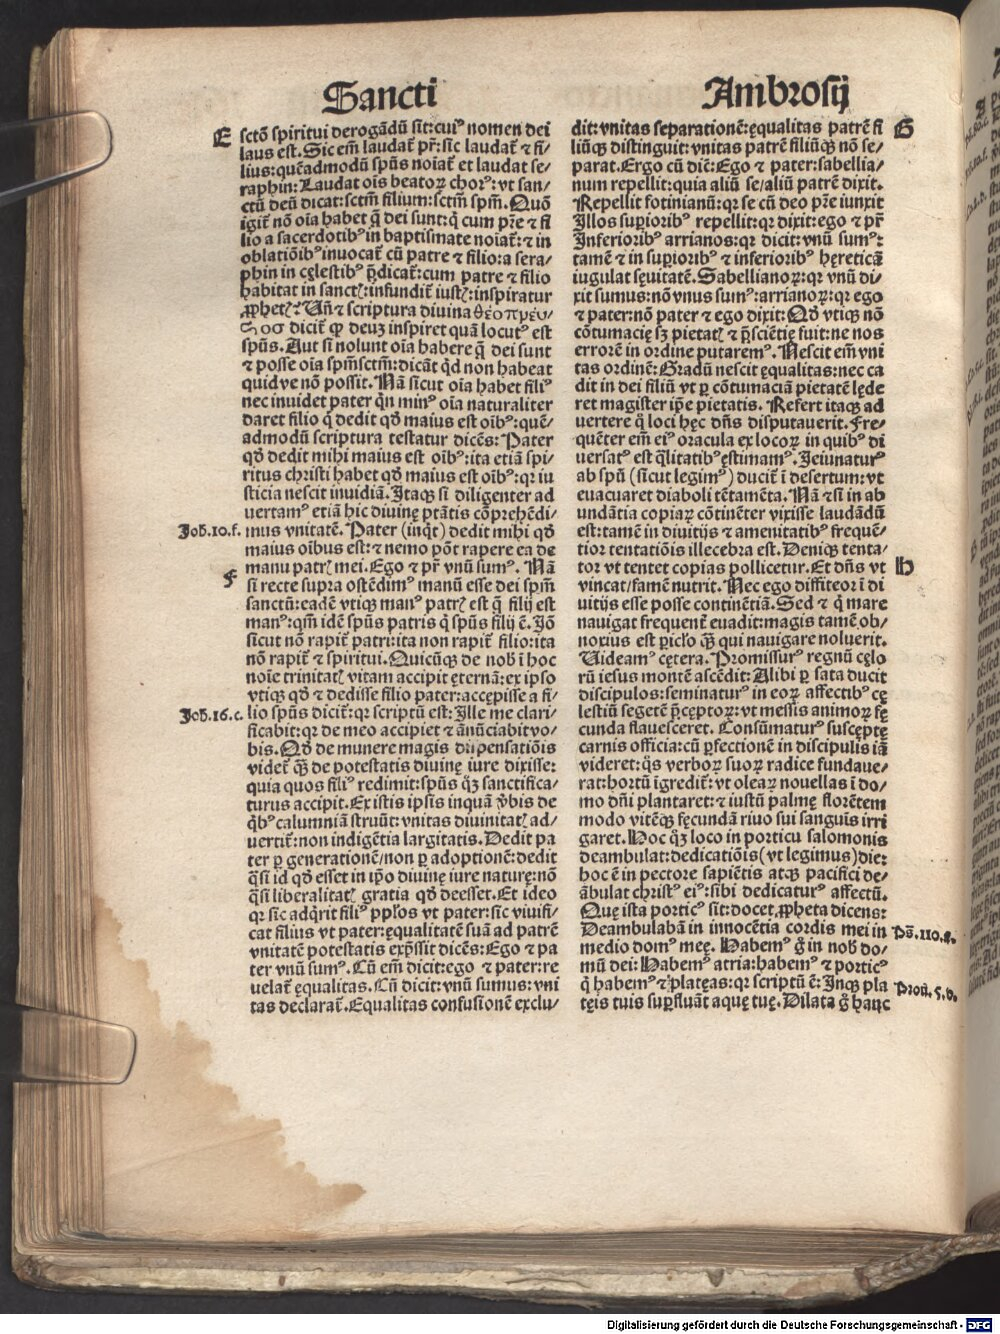 Sancti
Ambrosij
E
sctō spiritui derogādū sit:cuiꝰ nomen dei
laus est.Sic em̄ laudat̄ pr̄:sic laudat̄ ⁊ fi-
lius:quēadmodū spūs noīat̄ et laudat se-
raphin:Laudat oīs beatoꝝ chorꝰ:vt san-
ctū deū dicat:sctm̄ filium:sctm̄ spm̄.Quō
igit̄ nō oīa habet q̄ dei sunt:q̄ cum pr̄e ⁊ fi
lio a sacerdotibꝰ in baptismate noīat̄:⁊ in
oblatiōibꝰ inuocat̄ cū patre ⁊ filio:a sera/
phin in cęlestibꝰ p̄dicat̄:cum patre ⁊ filio
habitat in sanctꝭ:infundit̄ iustꝭ:inspiratur
ꝓphetꝭ? Uñ ⁊ scriptura diuina θεοπρευ/
ϛοσ dicit̄ ꝙ deuꝫ inspiret quā locutꝰ est
spūs.Aut si nolunt oīa habere q̄ dei sunt
⁊ posse oīa spm̄sctm̄:dicāt qd non habeat
quidve nō possit.Nā sicut oīa habet filiꝰ
nec inuidet pater q̄n minꝰ oīa naturaliter
daret filio q̄ dedit qđ maius est oībꝰ:quē-
admodū scriptura testatur dicēs:Pater
qđ dedit mihi maius est oībꝰ:ita etiā spi/
ritus christi habet qđ maius est oībꝰ:qꝛ iu
sticia nescit inuidiā.Itaqꝫ si diligenter ad
vertamꝰ etiā hic diuinę ptātis cōprehēdi/
Joh̄.10.f.
mus vnitatē. Pater (inq̄t) dedit mihi qđ
maius oībus est:⁊ nemo pōt rapere ea de
manu patrꝭ mei.Ego ⁊ pr̄ vnū sumꝰ. Nā
F
si recte supra ostēdimꝰ manū esse dei spm̄
sanctū:eadē vtiqꝫ manꝰ patrꝭ est q̄ filij est
manꝰ:qm̄ idē spūs patris q̄ spūs filij ē.Iō
sicut nō rapit̄ patri:ita non rapit̄ filio:ita
nō rapit̄ ⁊ spiritui.Quicūqꝫ de nob̄ ī hoc
noīe trinitatꝭ vitam accipit ęternā:ex ipso
vtiqꝫ qđ ⁊ dedisse filio pater:accępisse a fi/
Joh̄.16.c.
lio spūs dicit̄:qꝛ scriptū est:Ille me clari/
ficabit:qꝛ de meo accipiet ⁊ ānūciabit vo/
bis.Qđ de munere magis dispensatiōis
videt̄ qꝫ̄ de potestatis diuinę iure dixisse:
quia quos filiꝰ redimit:spūs qꝫ̄ sanctifica/
turus accipit.Ex istis ipsis inquā v̄bis de
q̄bꝰ calumniā struūt:vnitas diuinitatꝭ ad/
uertit̄:non indigētia largitatis.Dedit pa
ter ꝑ generationē/non ꝑ adoptionē:dedit
q̄si id qđ esset in ip̄o diuinę iure naturę:nō
q̄si liberalitatꝭ gratia qđ deesset.Et ideo
qꝛ sic adq̄rit filiꝰ pplōs vt pater:sic viuifi/
cat filius vt pater:equalitatē suā ad patrē
vnitatē potestatis exp̄ssit dicēs:Ego ⁊ pa
ter vnū sumꝰ.Cū em̄ dicit:ego ⁊ pater:re
uelat̄ ęqualitas.Cū dicit:vnū sumus:vni
tas declarat̄.Equalitas confusionē exclu/
G
dit:vnitas separationē:ęqualitas patrē fi
liūqꝫ distinguit:vnitas patrē filiūqꝫ nō se/
parat.Ergo cū dic̄:Ego ⁊ pater:sabellia/
num repellit:quia aliū se/aliū patrē dixit.
Repellit fotinianū:qꝛ se cū deo pr̄e iunxit
Illos suꝑioribꝰ repellit:qꝛ dixit:ego ⁊ pr̄
Inferioribꝰ arrianos:qꝛ dicit:vnū sumꝰ:
tamē ⁊ in suꝑioribꝰ ⁊ inferioribꝰ hęreticā
iugulat sęuitatē.Sabellianoꝝ:qꝛ vnū di/
xit sumus:nō vnus sumꝰ:arrianoꝝ:qꝛ ego
⁊ pater:nō pater ⁊ ego dixit:Qđ vtiqꝫ nō
cōtumacię sꝫ pietatꝭ ⁊ p̄sciētię fuit:ne nos
errorē in ordine putaremꝰ.Nescit em̄ vni
tas ordinē:Gradū nescit ęqualitas:nec ca
dit in dei filiū vt ꝑ cōtumaciā pietatē lęde
ret magister ip̄e pietatis. Refert itaqꝫ ad
uertere q̄ loci hęc dn̄s disputauerit.Fre/
quēter em̄ eiꝰ oracula ex locoꝝ in quibꝰ di
uersatꝰ est q̄litatibꝰ ęstimamꝰ.Ieiunaturꝰ
ab spū (sicut legimꝰ) ducit̄ ī desertum:vt
euacuaret diaboli tētamēta.Nā ⁊ si in ab
undātia copiaꝝ cōtinēter vixisse laudādū
est:tamē in diuitijs ⁊ amenitatibꝰ frequē/
tior tentatiōis illecebra est.Deniqꝫ tenta/
H
tor vt tentet copias pollicetur.Et dn̄s vt
vincat/famē nutrit.Nec ego diffiteor ī di
uitijs esse posse continētiā.Sed ⁊ q̄ mare
nauigat frequent̄ euadit:magis tamē ob/
noxius est picl̄o qꝫ̄ qui nauigare noluerit.
Uideamꝰ cętera.Promissurꝰ regnū cęlo
rū iesus montē ascēdit:Alibi ꝑ sata ducit
discipulos:seminaturꝰ in eoꝝ affectibꝰ cę
lestiū segetē p̄ceptoꝝ:vt messis animoꝝ fę
cunda flauesceret.Consūmaturꝰ susceptę
carnis officia:cū ꝑfectionē in discipulis iā
videret:q̄s verboꝝ suoꝝ radice fundaue/
rat:hortū īgredit̄:vt oleaꝝ nouellas ī do/
mo dn̄i plantaret:⁊ iustū palmę florētem
modo vitēqꝫ fęcundā riuo sui sanguis irri
garet.Hoc qꝫ̄ loco in porticu salomonis
deambulat:dedicatiōis(vt legimus)die:
hoc ē in pectore sapiētis atqꝫ pacifici de/
ābulat christꝰ eiꝰ:sibi dedicaturꝰ affectū.
Quę ista porticꝰ sit:docet ꝓpheta dicens:
Deambulabā in innocētia cordis mei in
Ps̄.110.g.
medio domꝰ meę. Habemꝰ g̊ in nob̄ do/
mū dei:Habemꝰ atria:habemꝰ ⁊ porticꝰ
q̄ habemꝰ ⁊ platęas:qꝛ scriptū ē:Inqꝫ pla
Prou̅.5.b.
tęis tuis suꝑfluāt aquę tuę.Dilata g̊ hanc